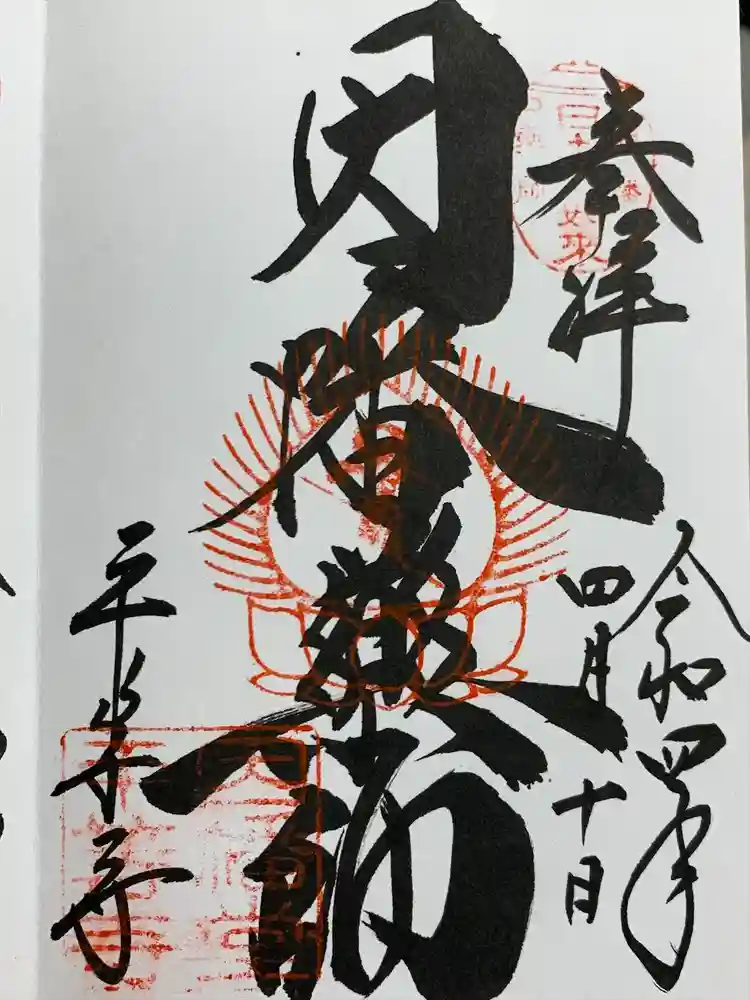 奉拝
令和四年
四月十日
因幡薬師
平等寺